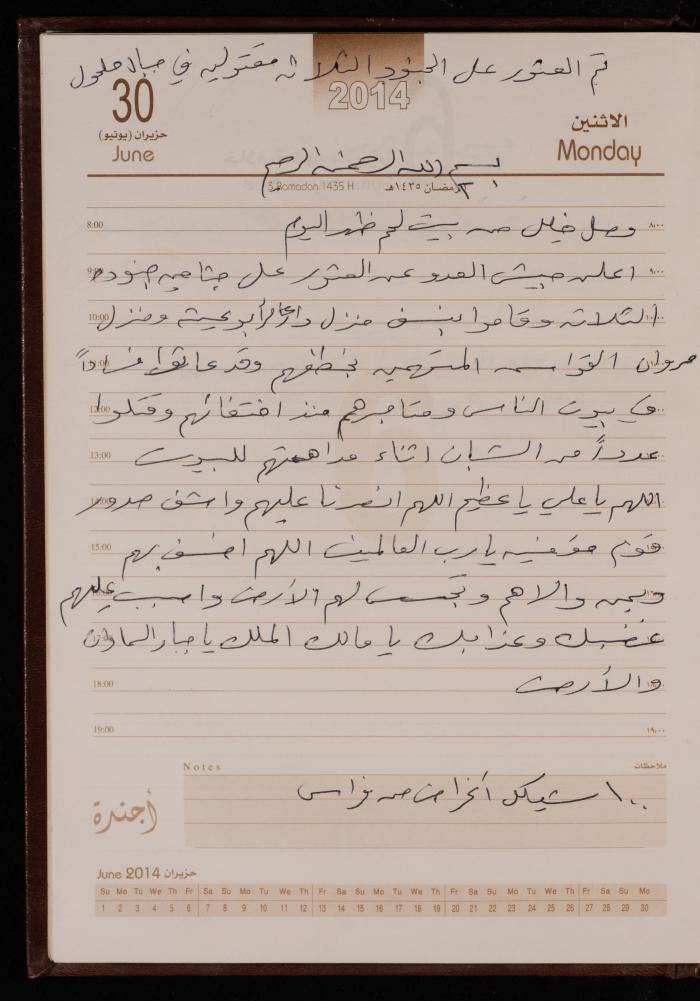 تم العثور على الجنود الثلاثة مقتولين في جبال حلحول
2014
30
حزيران (يونيو)
June
الاثنين
Monday
بسم الله الرحمن الرحيم
3 Ramadan 1435 H
رمضان ١٤٣٥هـ
8:00 وصل خليل من بيت لحم ظهر اليوم ٨:٠٠
9:00 اعلن جيش العدو عن العثور على جثامين جنوده ٩:٠٠
10:00 الثلاثة وقاموا بنسف منزل عامر أبو عيشة ومنزل ١٠:٠٠
مروان القواسمه المتهمين بخطفهم وقد عاثوا فساداً
12:00 في بيوت الناس ومتاجرهم منذ اختفائهم وقتلوا
13:00 عدداً من الشبان اثناء مداهمتهم للبيوت
14:00 اللهم يا علي يا عظيم اللهم انصرنا عليهم واشف صدور
15:00 قوم مؤمنين يا رب العالمين اللهم اخسف بهم
وبمن والاهم الارض واصبب عليهم
غضبك وعذابك يا مالك الملك يا جبار السماوات
18:00 والأرض
19:00 ١٩:٠٠
Notes ملاحظات
١٠٠ شيكل من فراس
أجندة
June 2014 حزيران
Su Mo Tu We Th Fr Sa Su Mo Tu We Th Fr Sa Su Mo Tu We Th Fr Sa Su Mo Tu We Th Fr Sa Su Mo
1 2 3 4 5 6 7 8 9 10 11 12 13 14 15 16 17 18 19 20 21 22 23 24 25 26 27 28 29 30